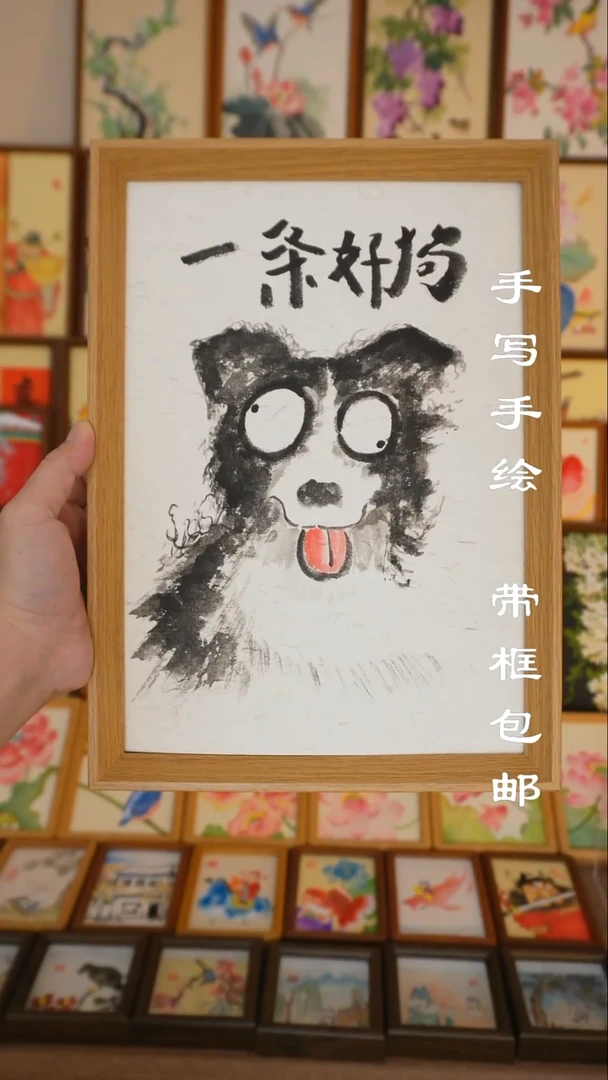 一条好狗
手写手绘
带框包邮